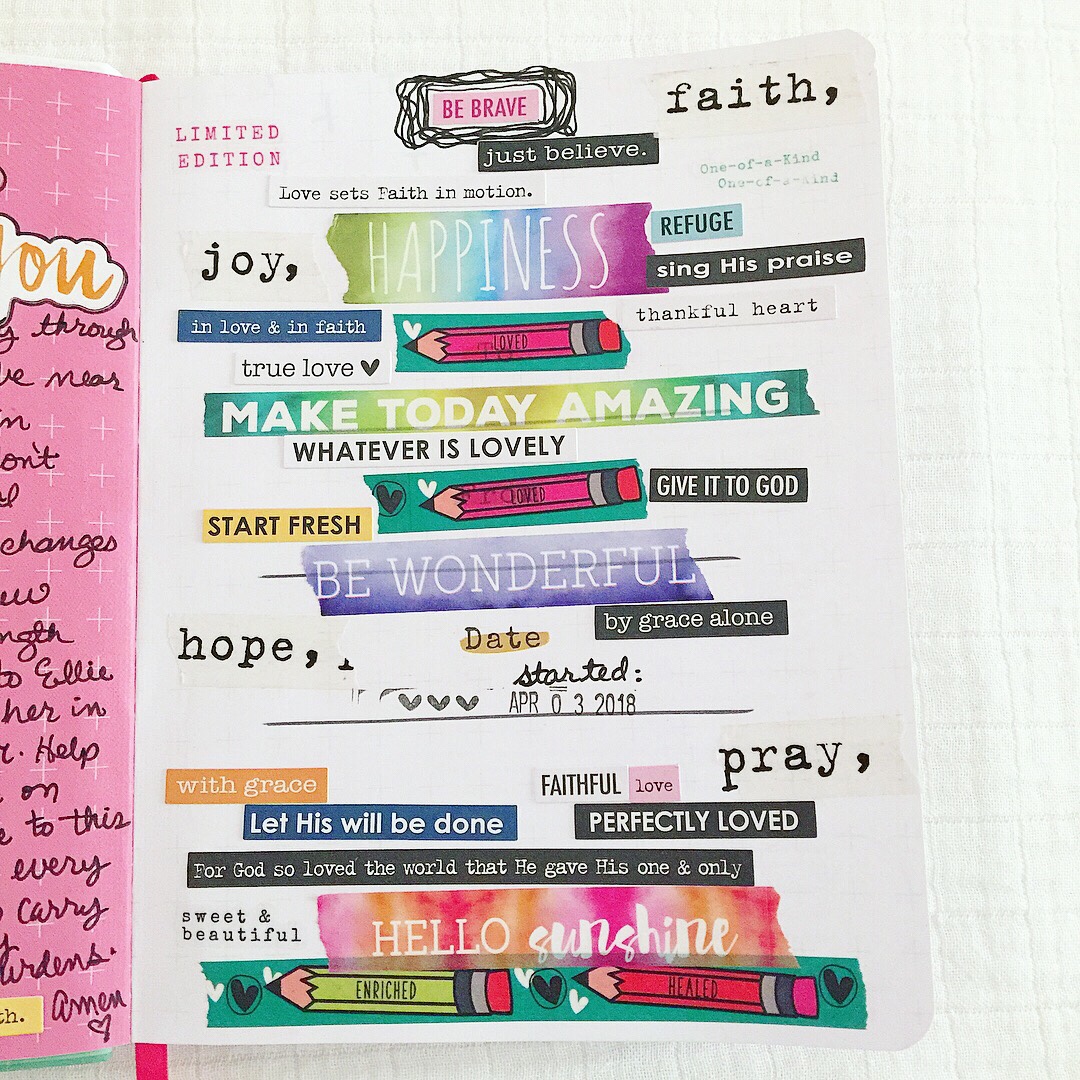 you
through
near
on't
changes
to Ellie
her in
Help
on
to this
every
carry
Amen
th.
BE BRAVE
faith,
LIMITED
EDITION
just believe.
One-of-a-Kind
One-of-a-Kind
Love sets Faith in motion.
HAPPINESS
REFUGE
joy,
sing His praise
thankful heart
in love & in faith
LOVED
true love
MAKE TODAY AMAZING
WHATEVER IS LOVELY
LOVED
GIVE IT TO GOD
START FRESH
BE WONDERFUL
by grace alone
hope,
Date
started:
APR 03 2018
pray,
with grace
FAITHFUL love
Let His will be done
PERFECTLY LOVED
For God so loved the world that He gave His one & only
sweet &
beautiful
HELLO sunshine
ENRICHED
HEALED